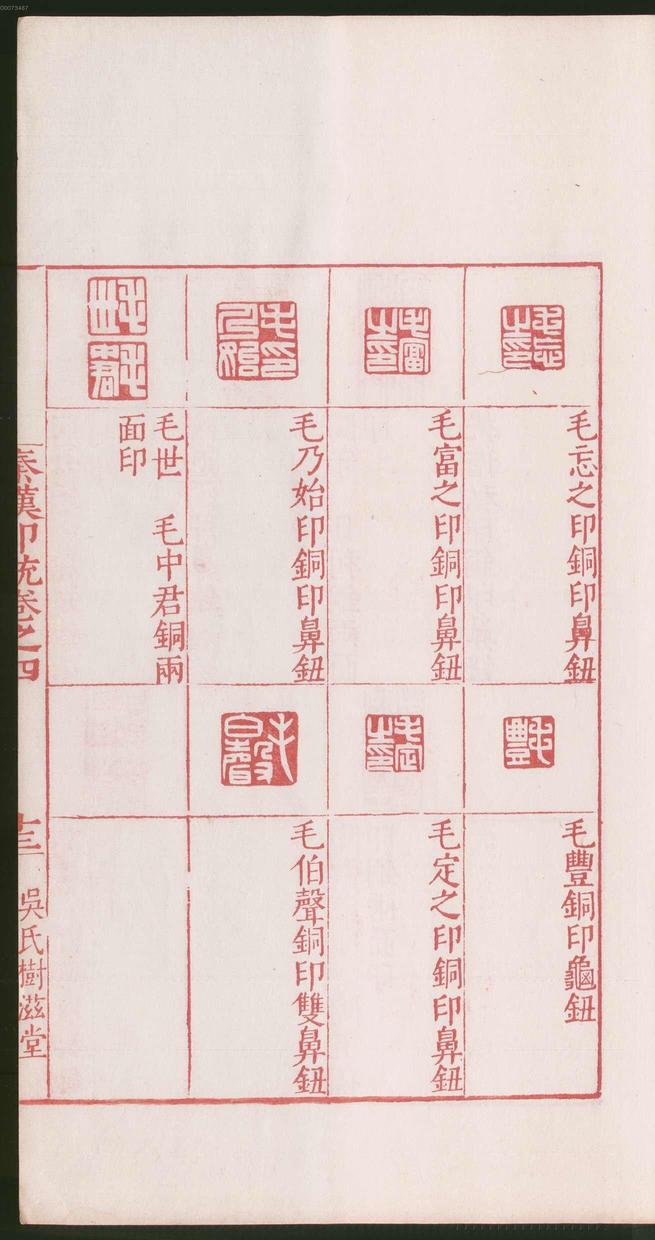 毛忘之印銅印鼻鈕
毛富之印銅印鼻鈕
毛乃始印銅印鼻鈕
毛世　毛中君銅兩
面印
毛豐銅印龜鈕
毛定之印銅印鼻鈕
毛伯聲銅印雙鼻鈕
秦漢印統卷之四
十三
吳氏樹滋堂
00073467